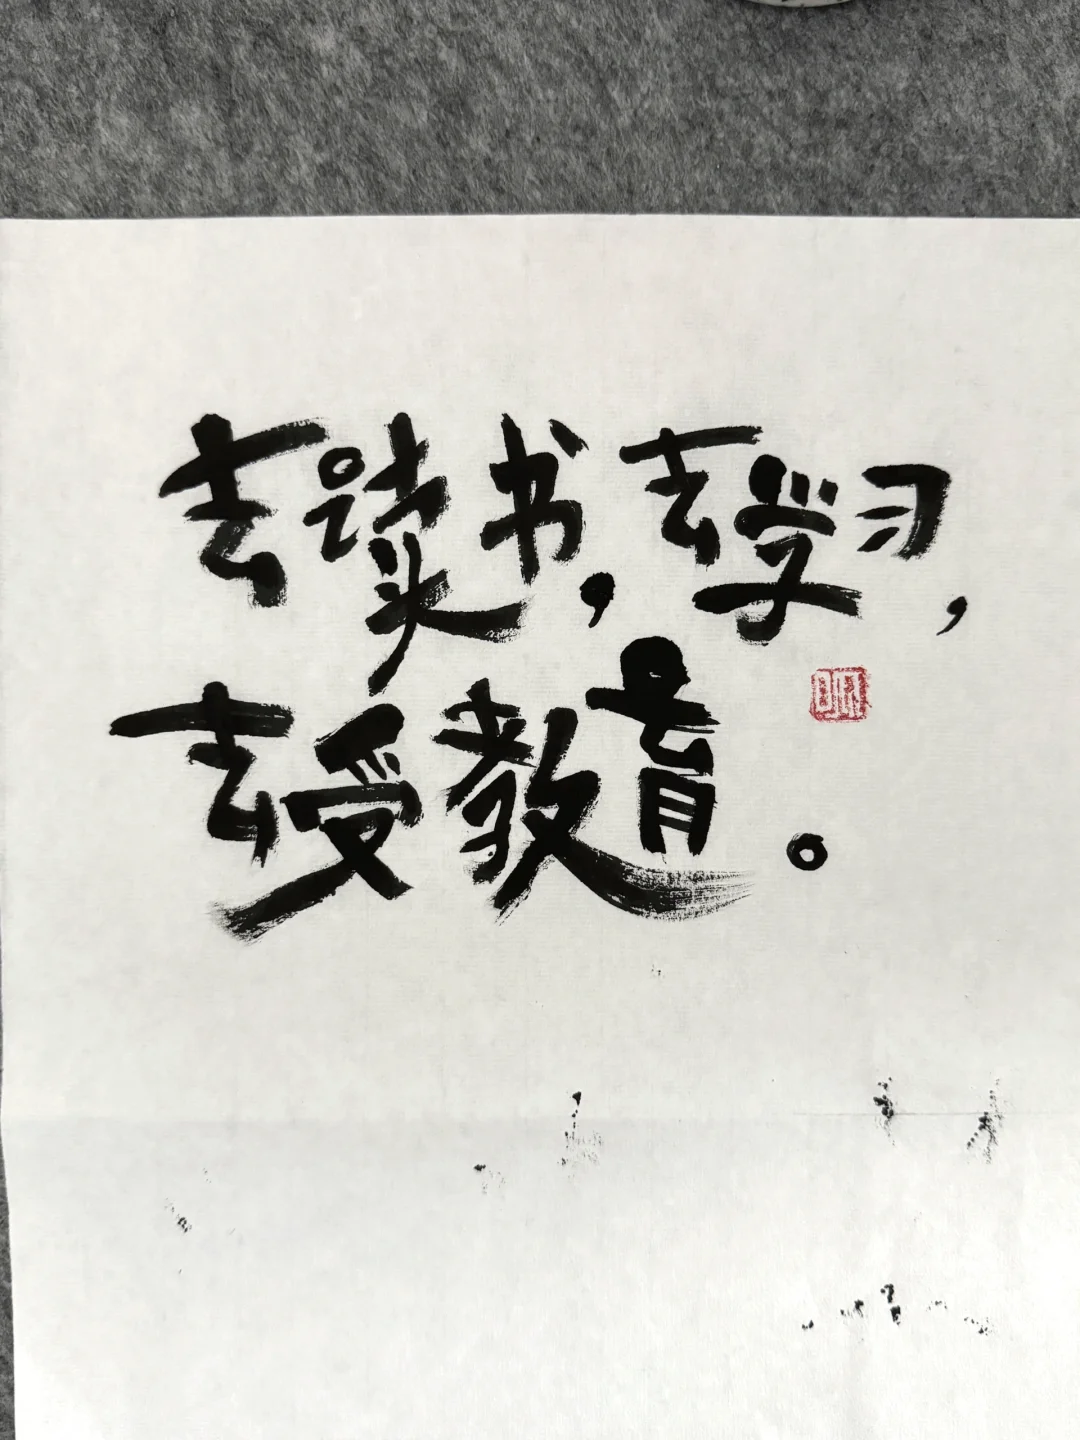 去读书,去学习,
去受教育。